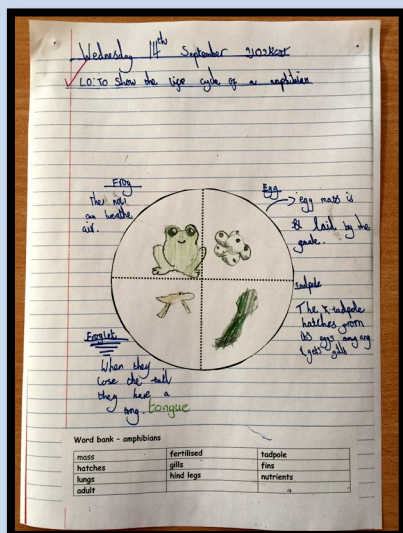 Wednesday 14th September
LO: To show the life cycle of a amphibian
Frog
The now
can breathe
air.
Egg
egg mass is
laid by the
Tadpole
The tadpole
hatches from
its eggs and
gets gills
Froglet
When they
lose the tail
they have a
tongue
Word bank - amphibians
mass fertilised tadpole
hatches gills fins
lungs hind legs nutrients
adult